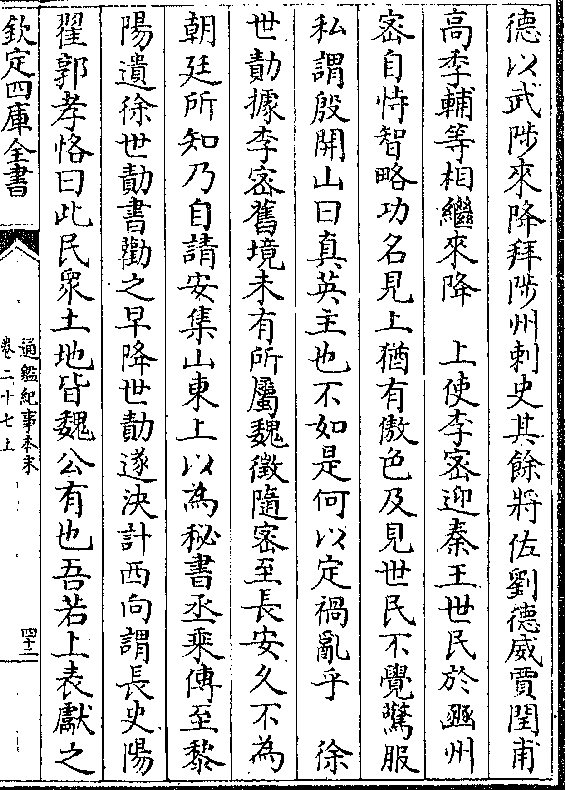 德以武陟來降拜陟州刺史其餘將佐劉德威賈閏甫
高季輔等相繼來降　上使李密迎秦王世民於豳州
密自恃智略功名見上猶有傲色及見世民不覺驚服
私謂殷開山曰真英主也不如是何以定禍亂乎　徐
世勣據李密舊境未有所屬魏徵隨密至長安久不為
朝廷所知乃自請安集山東上以為秘書丞乘傳至黎
陽遺徐世勣書勸之早降世勣遂決計西向謂長史陽
翟郭孝恪曰此民衆土地皆魏公有也吾若上表獻之
欽定四庫全書
通鑑紀事本末
卷二十七上
四十二